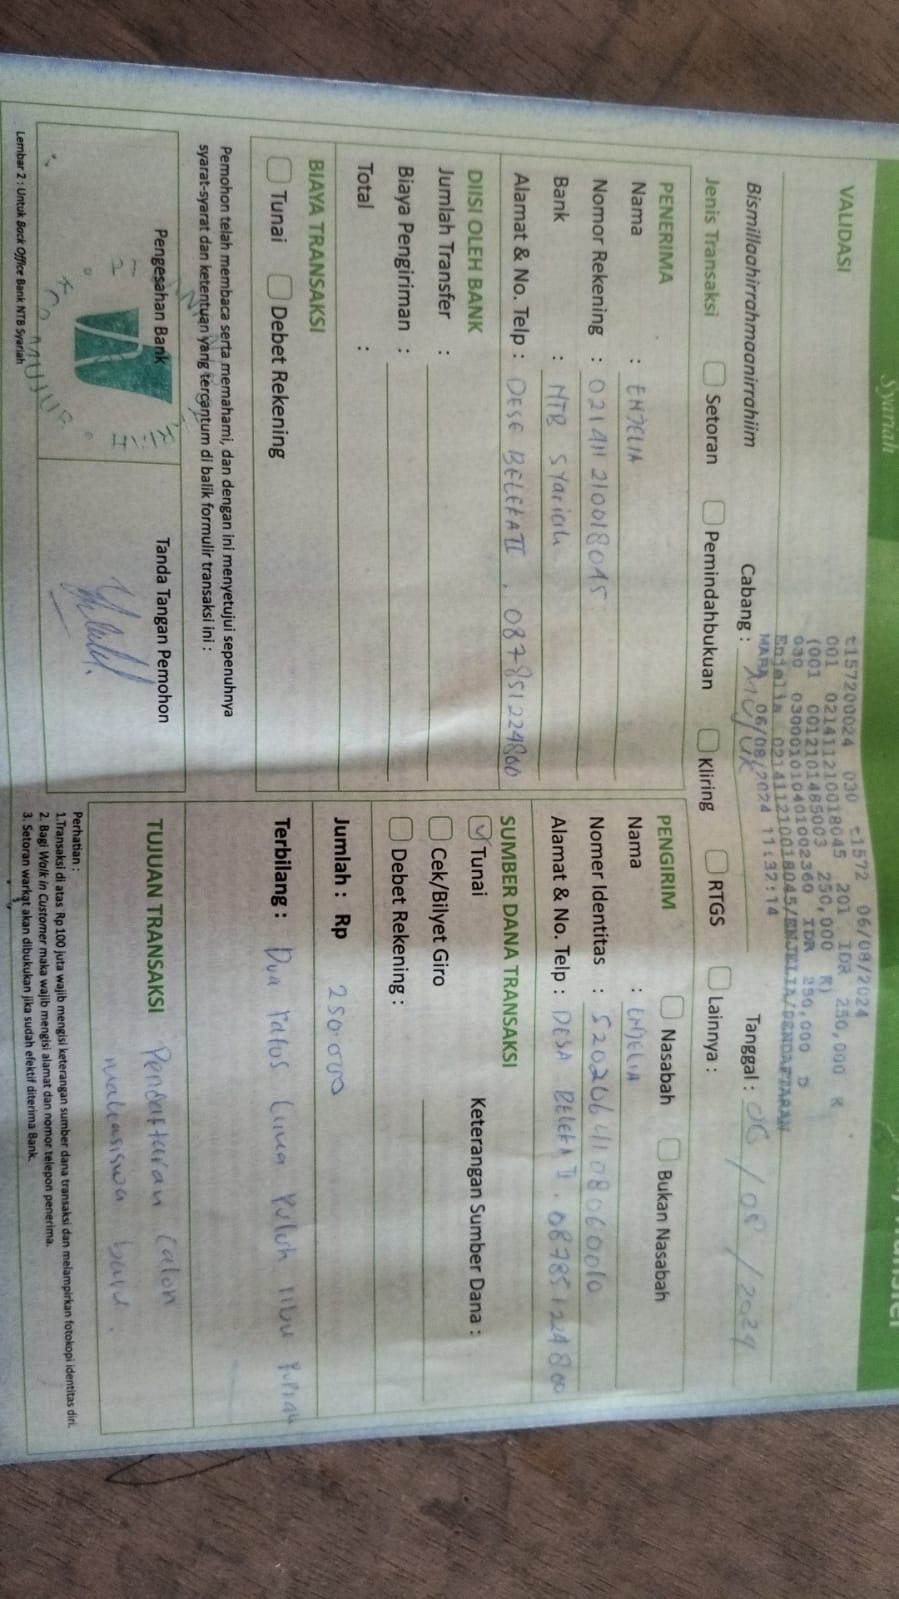 Syariah
VALIDASI
t157200024 030 t1572 06/08/2024
001 021411210018045 201 IDR 250,000 R
(001 0012101485003 250,000 R)
030 030001010401002360 IDR 250,000 D
Enjelia 021411210018045/ENJELIA/PENDAFTARAN
06/08/2024 11:37:14
Bismillaahirrahmaanirrahiim
Cabang : MUJUR
Tanggal : 06 / 08 / 2024
Jenis Transaksi Setoran Pemindahbukuan Kliring RTGS Lainnya :
PENERIMA
Nama : ENJELIA
Nomor Rekening : 021411210018045
Bank : NTB SYariah
Alamat & No. Telp : DESE BELEKA II . 087851224800
PENGIRIM Nasabah Bukan Nasabah
Nama : ENJELIA
Nomer Identitas : 5202064108060010
Alamat & No. Telp : DESA BELEKA II . 087851224800
DIISI OLEH BANK
Jumlah Transfer :
Biaya Pengiriman :
Total :
SUMBER DANA TRANSAKSI
Tunai Keterangan Sumber Dana :
Cek/Bilyet Giro
Debet Rekening :
BIAYA TRANSAKSI
Tunai Debet Rekening
Jumlah : Rp 250.000
Terbilang : Dua ratos Lima Puluh ribu rupiah
Pemohon telah membaca serta memahami, dan dengan ini menyetujui sepenuhnya
syarat-syarat dan ketentuan yang tercantum di balik formulir transaksi ini :
Pengesahan Bank
Tanda Tangan Pemohon
MUJUR
TUJUAN TRANSAKSI Pendaftaran calon
mahasiswa baru .
Perhatian :
1.Transaksi di atas Rp 100 juta wajib mengisi keterangan sumber dana transaksi dan melampirkan fotokopi identitas diri.
2. Bagi Walk in Customer maka wajib mengisi alamat dan nomor telepon penerima.
3. Setoran warkat akan dibukukan jika sudah efektif diterima Bank.
Lembar 2 : Untuk Back Office Bank NTB Syariah